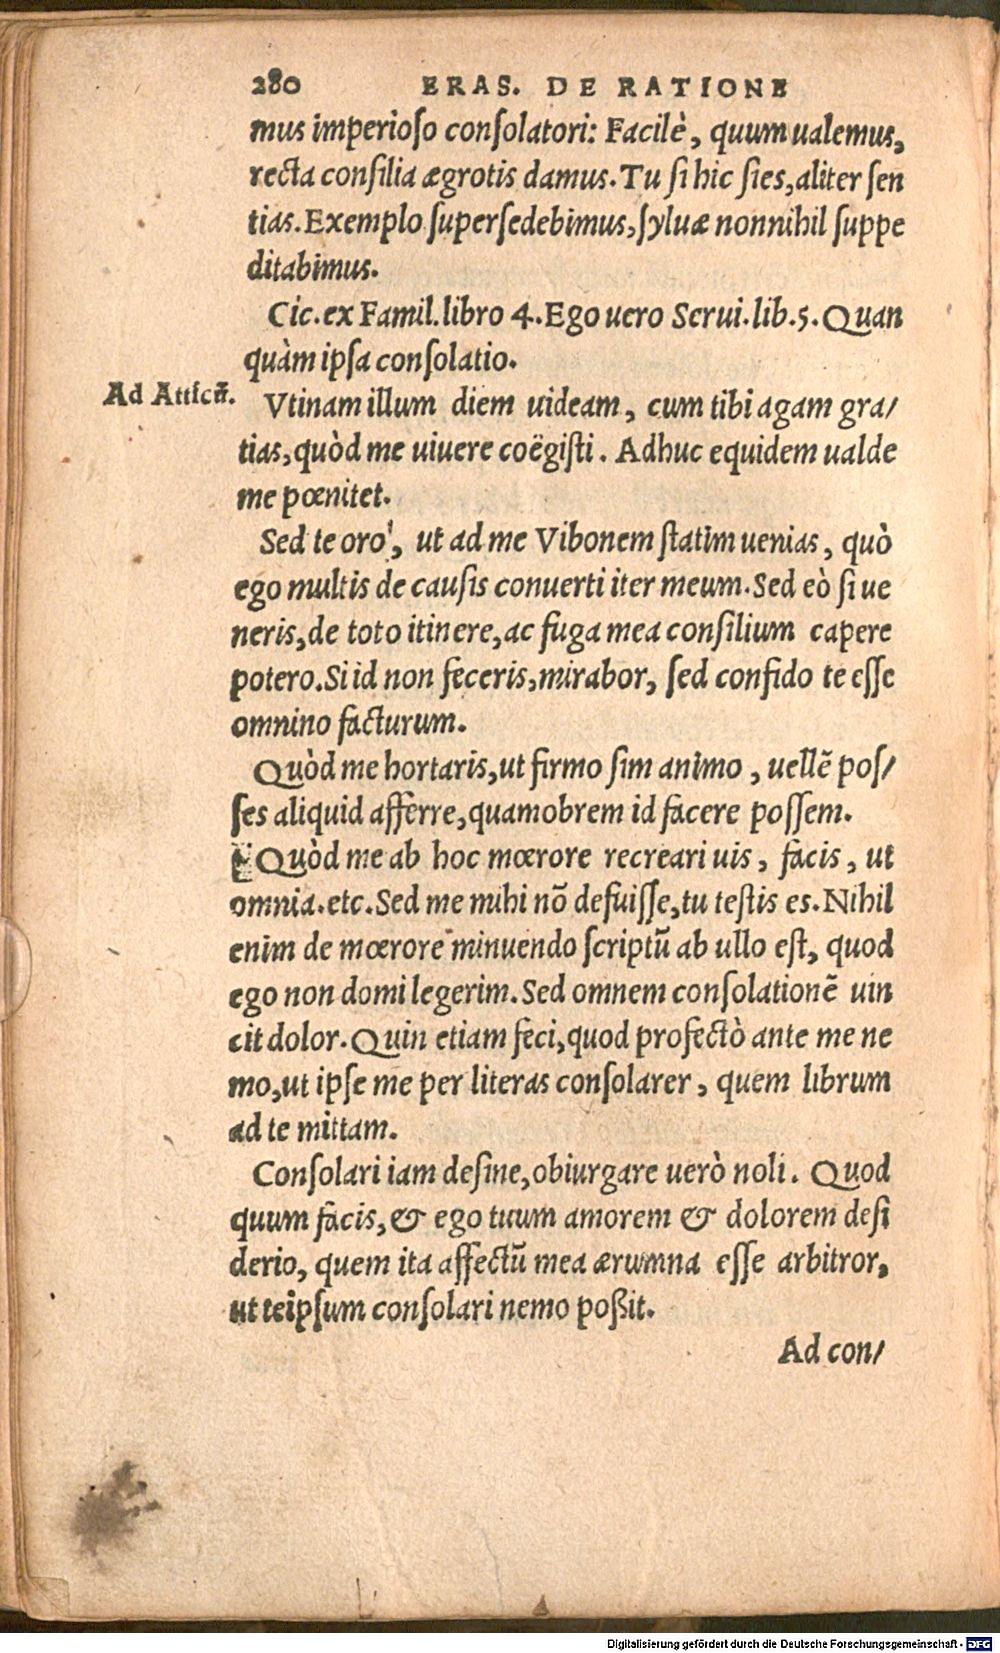 280 ERAS. DE RATIONE
mus imperioso consolatori: Facilè, quum ualemus,
recta consilia ægrotis damus. Tu si hic sies, aliter sen
tias. Exemplo supersedebimus, syluæ nonnihil suppe
ditabimus.
Cic. ex Famil. libro 4. Ego uero Serui. lib. 5. Quan
quàm ipsa consolatio.
Ad Atticū.
Vtinam illum diem uideam, cum tibi agam gra/
tias, quòd me uiuere coëgisti. Adhuc equidem ualde
me pœnitet.
Sed te oro, ut ad me Vibonem statim uenias, quò
ego multis de causis conuerti iter meum. Sed eò si ue
neris, de toto itinere, ac fuga mea consilium capere
potero. Si id non feceris, mirabor, sed confido te esse
omnino facturum.
Quòd me hortaris, ut firmo sim animo, uellẽ pos/
ses aliquid afferre, quamobrem id facere possem.
Quòd me ab hoc mœrore recreari uis, facis, ut
omnia. etc. Sed me mihi nõ defuisse, tu testis es. Nihil
enim de mœrore minuendo scriptũ ab ullo est, quod
ego non domi legerim. Sed omnem consolationẽ uin
cit dolor. Quin etiam feci, quod profectò ante me ne
mo, ut ipse me per literas consolarer, quem librum
ad te mittam.
Consolari iam desine, obiurgare uerò noli. Quod
quum facis, & ego tuum amorem & dolorem desi
derio, quem ita affectũ mea ærumna esse arbitror,
ut teipsum consolari nemo poßit.
Ad con/
Digitalisierung gefördert durch die Deutsche Forschungsgemeinschaft - DFG